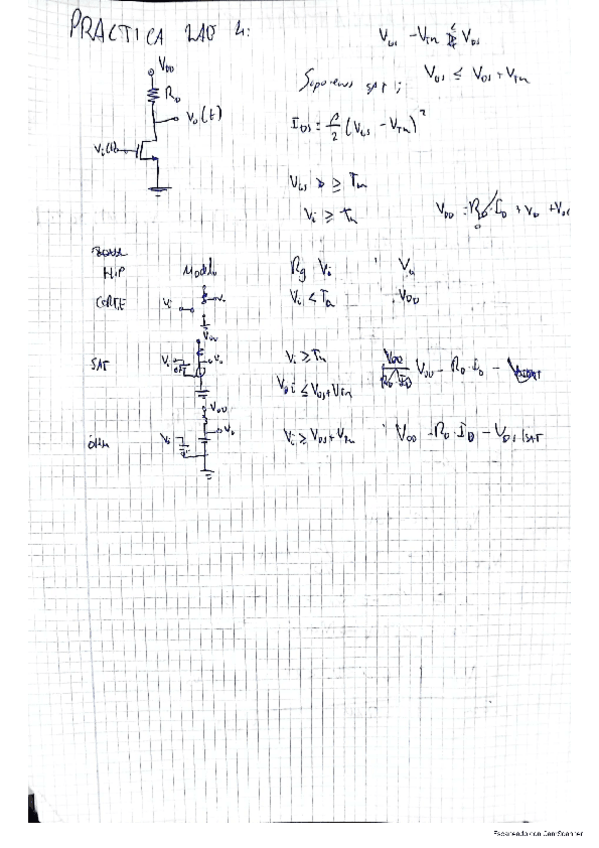 PRACTICA LAB 4:
V_GS - V_Tn ≤ V_DS
V_DD
R_D
V_o(t)
V_i(t)
Suponemos SAT:
V_GS ≤ V_DS + V_Tn
I_DS = β/2 (V_GS - V_Tn)²
V_GS ≥ T_n
V_i ≥ T_n
V_DD = R_D · I_D +
HIP Modelo Rg V_i V_o
CORTE V_i V_o V_i < T_n V_DD
V_DD
SAT V_i V_o V_i ≥ T_n V_DD - R_D · I_D -
V_i ≤ V_DS + V_Tn
V_DD
OHM V_i V_o V_i ≥ V_DS + V_Tn V_DD - R_D · I_D - V_DS|SAT
Escaneado con CamScanner